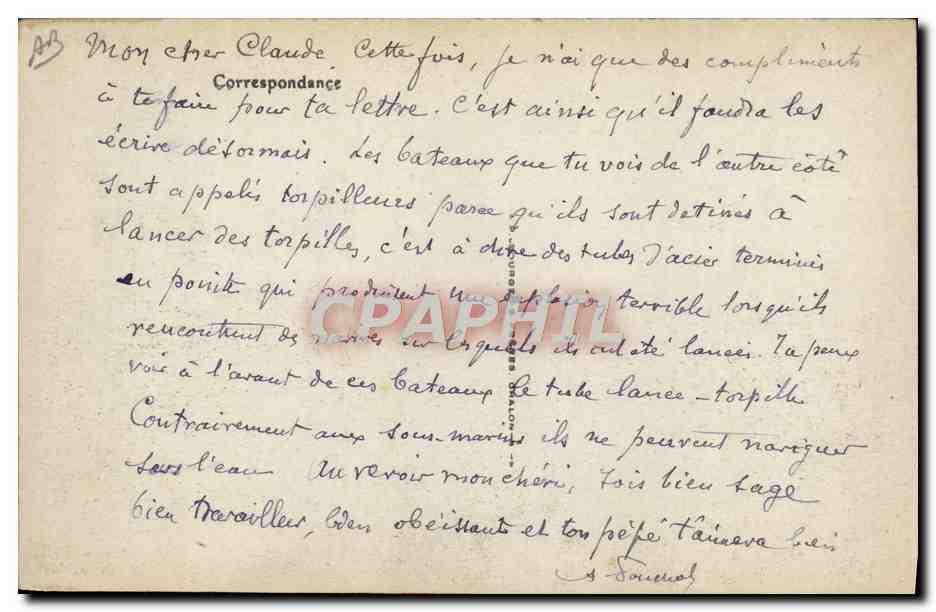 AB
Mon cher Claude. Cette fois, je n'ai que des compliments
Correspondance
à te faire pour ta lettre. C'est ainsi qu'il faudra les
écrire désormais. Les bateaux que tu vois de l'autre côté
sont appelés torpilleurs parce qu'ils sont detinés à
lancer des torpilles, c'est à dire des tubes d'acier terminés
en pointe qui produisent une explosion terrible lorsqu'ils
rencontrent des navires sur lesquels ils ont été lancés. Tu peux
voir à l'avant de ces bateaux le tube lance-torpille
Contrairement aux sous-marins ils ne peuvent naviguer
sous l'eau Au revoir mon chéri, sois bien sage
bien travailleur, bien obéissant et ton pépé t'aimera bien
CPAPHIL